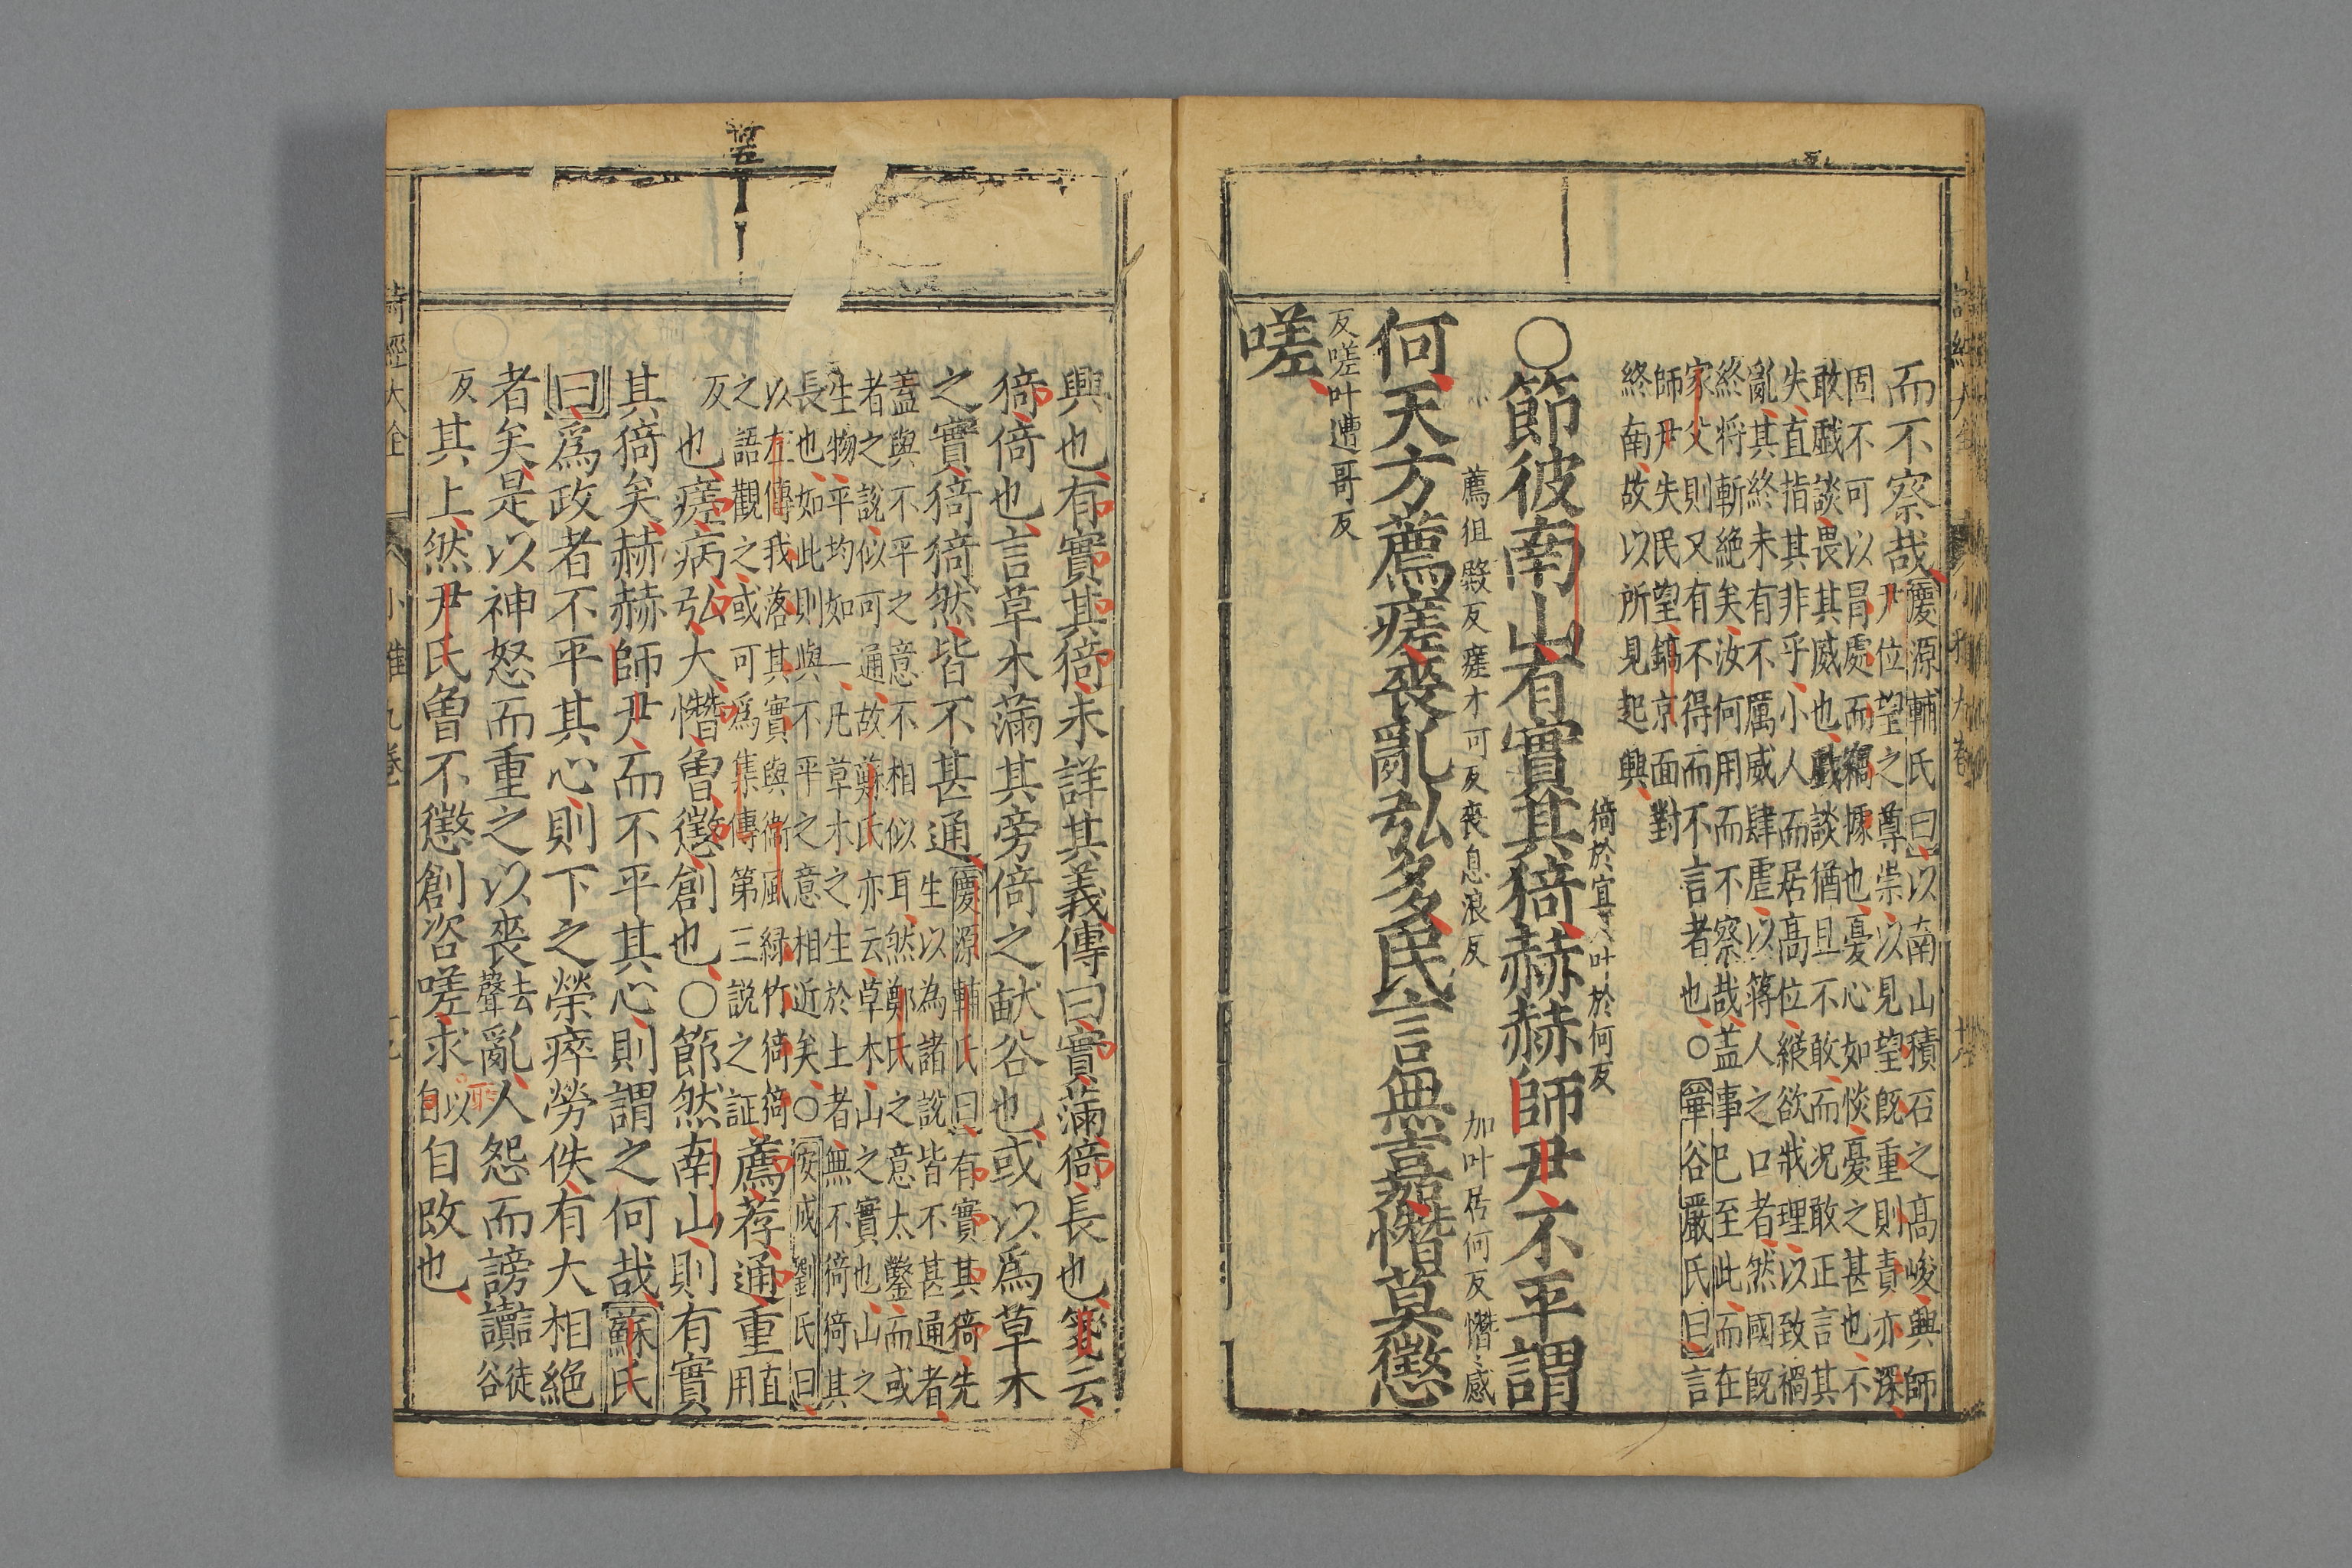 而不察哉慶源輔氏曰以南山積石之高峻興師
尹位望之尊崇以見望既重則責亦深
固不可以冐處而䅵據也憂心如惔憂之甚也不
敢戲談畏其威也戲談猶且不敢而况敢正言其
失直指其非乎小人而居高位縱欲戕理以致禍
亂其終未有不厲威肆虐以箝人之口者然國既
終將斬絶矣汝何用而不察哉盖事已至此而在
家父則又有不得而不言者也〇華谷嚴氏曰言
師尹失民望鎬京面對
終南故以所見起興
〇節彼南山有實其猗猗於宜反叶於何反赫赫師尹不平謂
何天方薦薦徂殿反瘥瘥才可反喪喪息浪反亂弘多民言無嘉加叶居何反憯憯感莫懲
反嗟叶遭哥反
嗟
興也有實其猗未詳其義傳曰實滿猗長也箋云
猗倚也言草木滿其旁倚之畎谷也或以爲草木
之實猗猗然皆不甚通慶源輔氏曰有實其猗先
生以為諸說皆不甚通者
蓋與不平之意不相似耳然鄭氏之意太鑿而或
者之說似可通故蘇氏亦云草木山之實也山之
生物平均如一凡草木之生於土者無不猗猗其
長也如此則與不平之意相近矣〇安成劉氏曰
以左傳我落其實與衛風緑竹猗猗
之語觀之或可爲集傳第三說之証薦荐通重直用
反也瘥病弘大憯曾懲創也〇節然南山則有實
其猗矣赫赫師尹而不平其心則謂之何哉蘇氏
曰爲政者不平其心則下之榮瘁勞佚有大相絶
者矣是以神怒而重之以喪去聲亂人怨而謗讟徒谷
反其上然尹氏曾不懲創咨嗟求所以自改也
詩經大全
小雅九卷